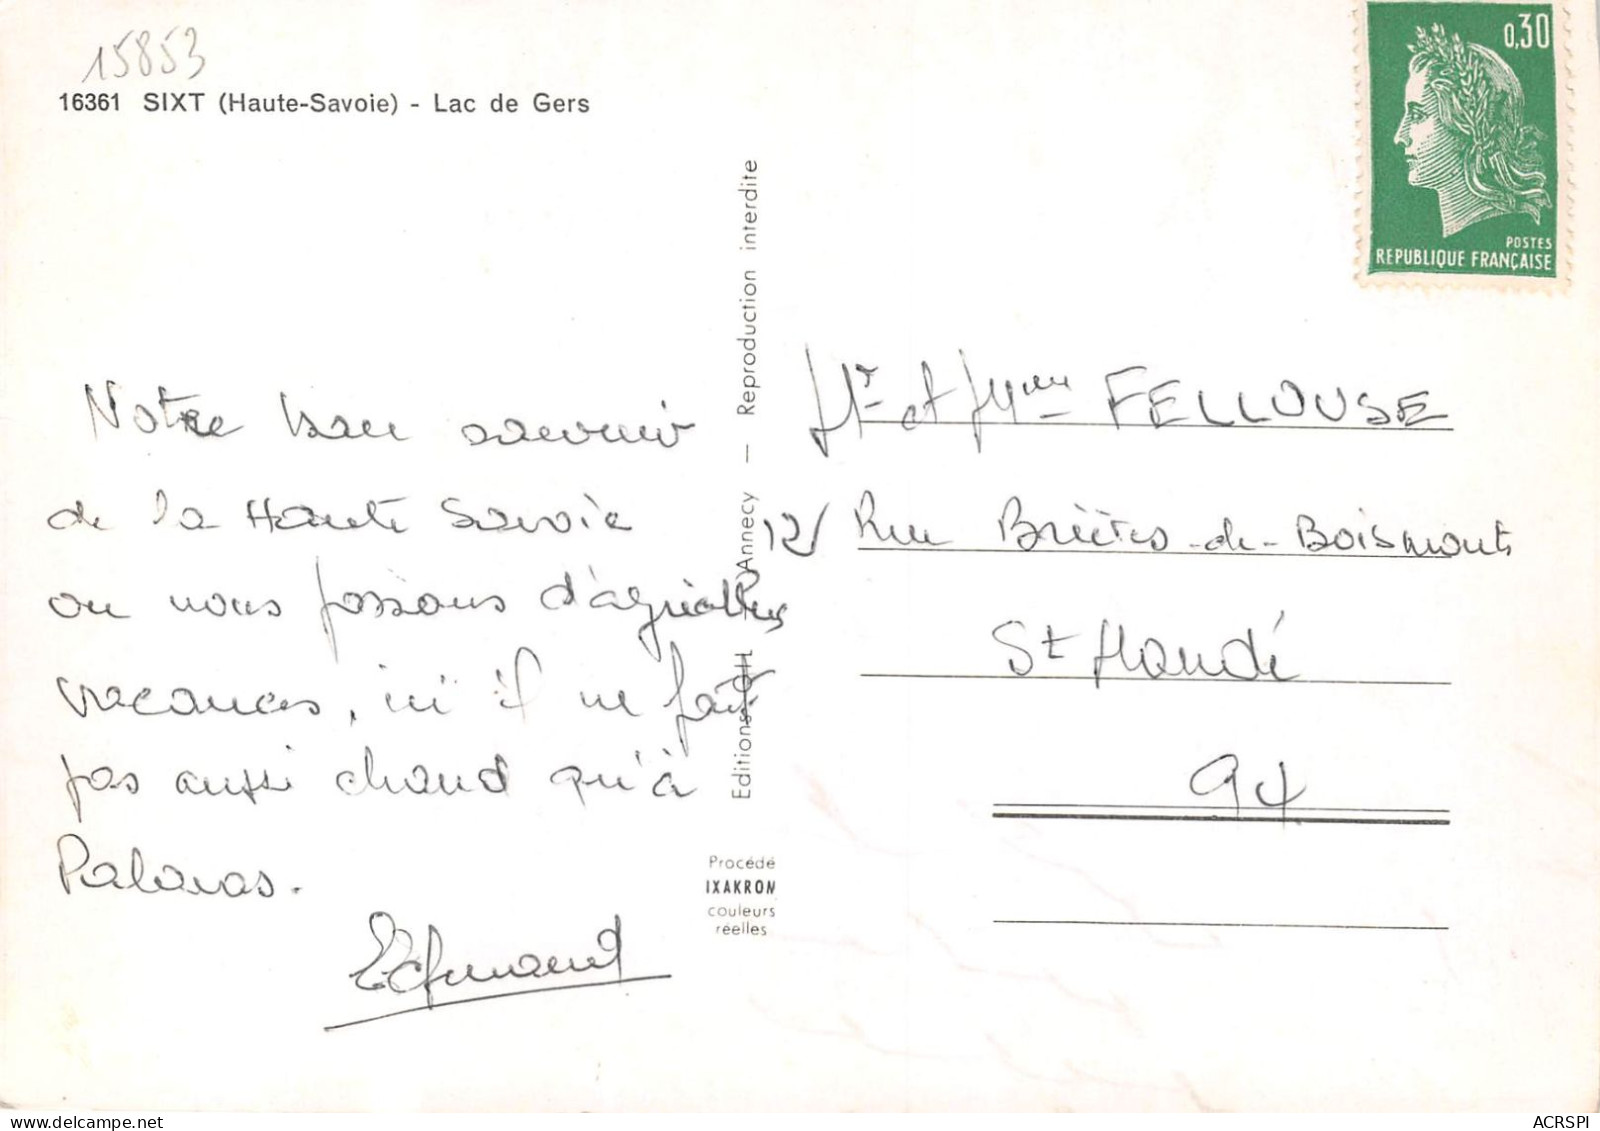 15853
16361 SIXT (Haute-Savoie) - Lac de Gers
0,30
POSTES
REPUBLIQUE FRANÇAISE
Notre bon souvenir
de la Haute Savoie
ou nous passons d'agréables
vacances, ici il ne fait
pas aussi chaud qu'à
Palavas.
Edmond
Editions Annecy — Reproduction interdite
Procédé
IXAKROM
couleurs
réelles
Mr et Mme FELLOUSE
12/ Rue Brières-de-Boismonts
St Mandé
94
ACRSPI